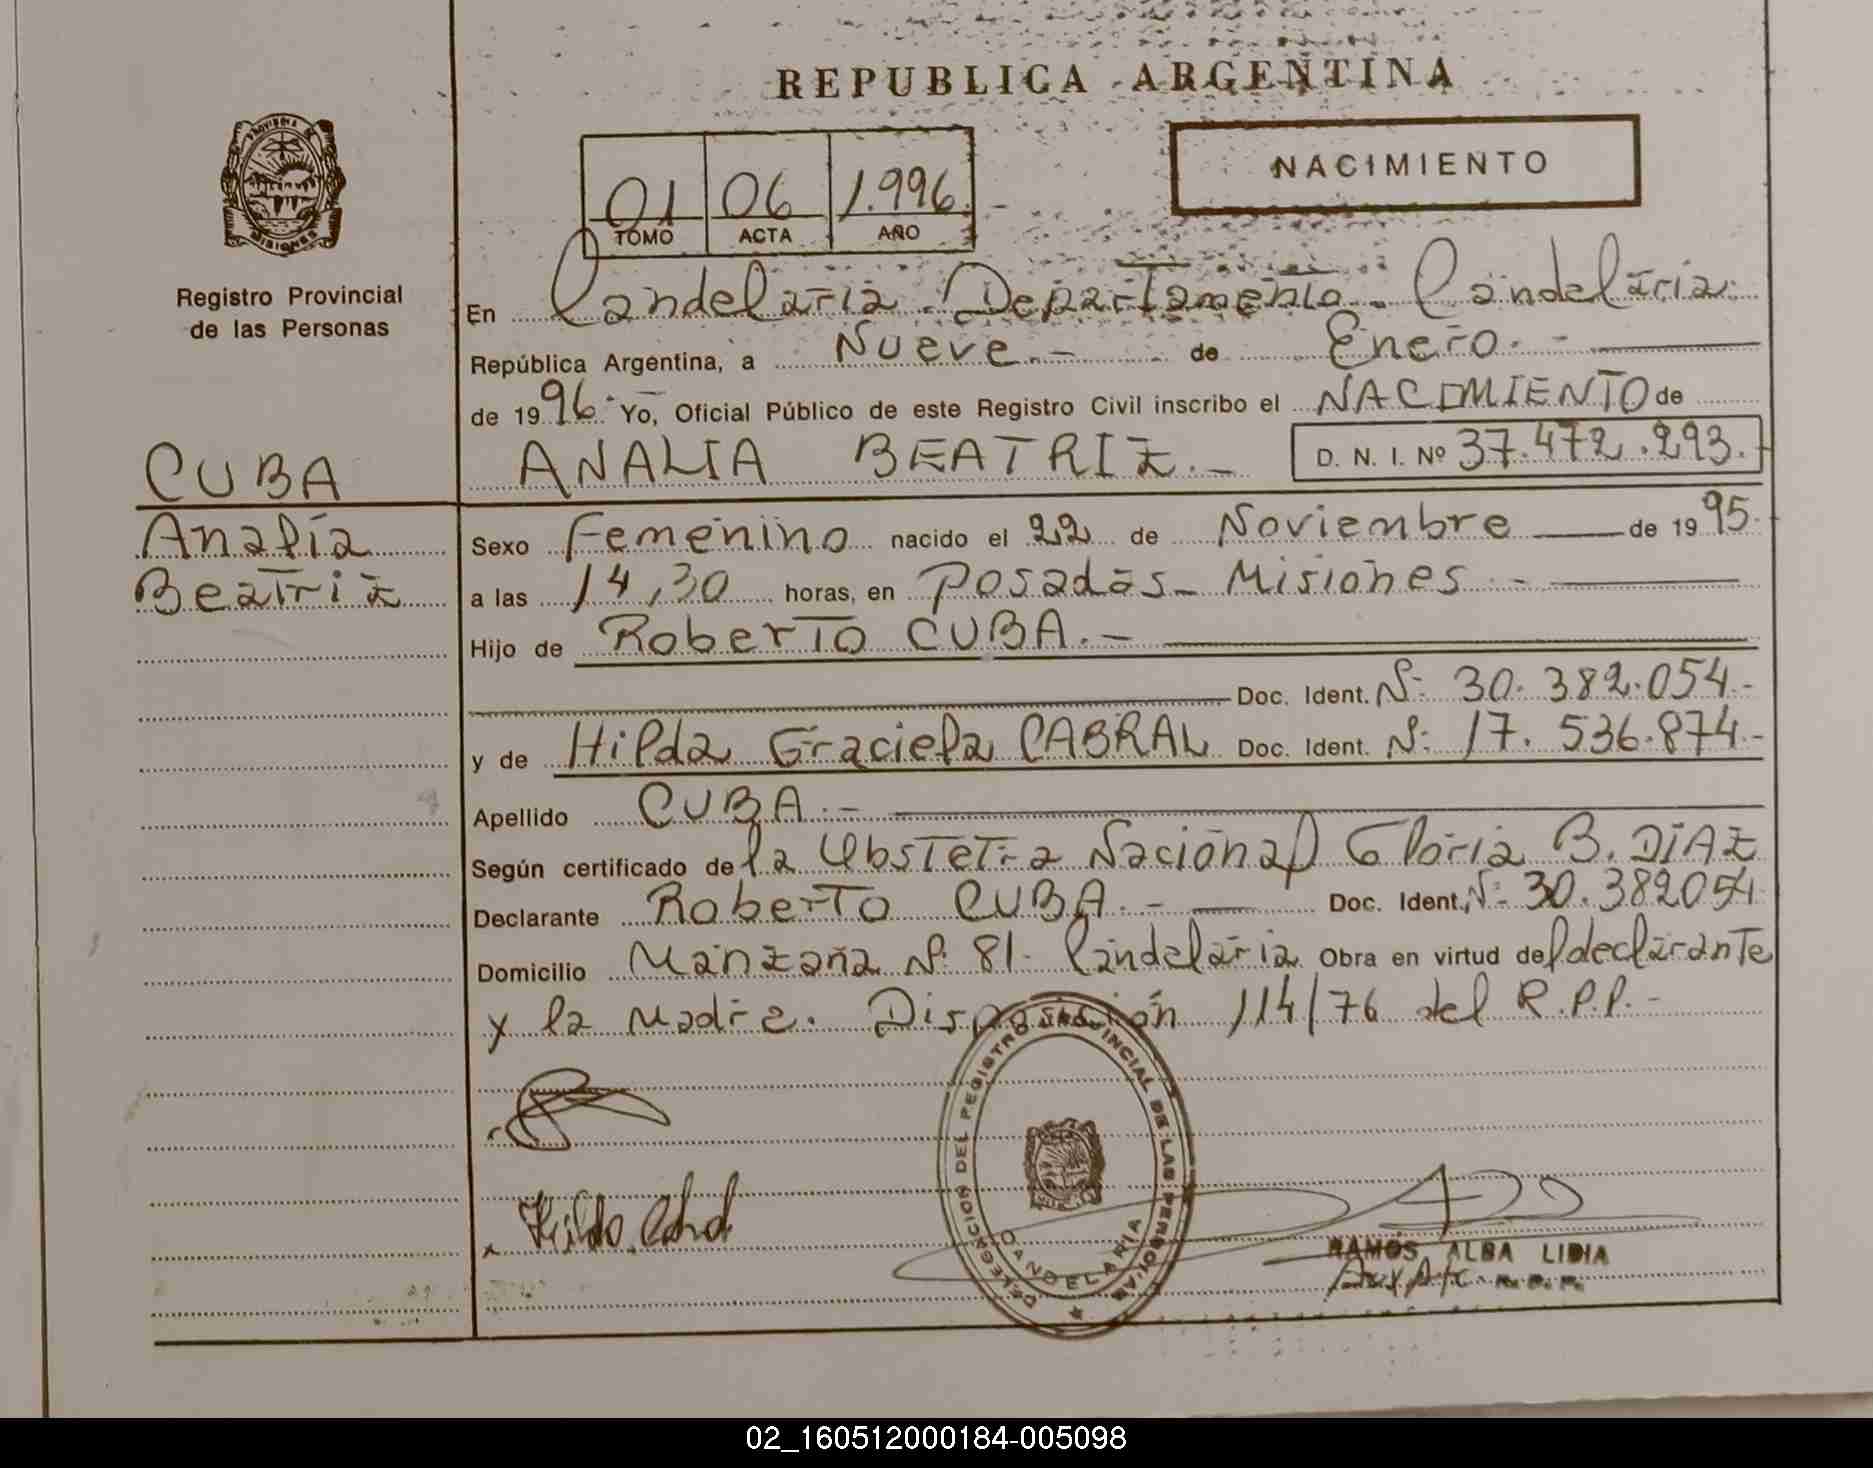 REPUBLICA ARGENTINA
PROVINCIA DE
MISIONES
Registro Provincial
de las Personas
01 06 1.996
TOMO ACTA AÑO
NACIMIENTO
En Candelaria Departamento Candelaria
República Argentina, a Nueve.- de Enero.-
de 1996. Yo, Oficial Público de este Registro Civil inscribo el NACIMIENTO de
CUBA
ANALIA BEATRIZ.- D. N. I. Nº 37.472.293.
Analía
Beatriz
Sexo Femenino nacido el 22 de Noviembre de 1995.
a las 14,30 horas, en Posadas- Misiones.-
Hijo de Roberto CUBA.-
Doc. Ident. Nº 30.382.054.-
y de Hilda Graciela CABRAL Doc. Ident. Nº 17.536.874.-
Apellido CUBA.-
Según certificado de la Obstetra Nacional Gloria B. DIAZ
Declarante Roberto CUBA.- Doc. Ident. Nº 30.382054
Domicilio Manzana Nº 81- Candelaria Obra en virtud del declarante
y la madre. Disposición 114/76 del R.P.P.-
DELEGACION DEL REGISTRO PROVINCIAL DE LAS PERSONAS
CANDELARIA
RAMOS, ALBA LIDIA
02_160512000184-005098